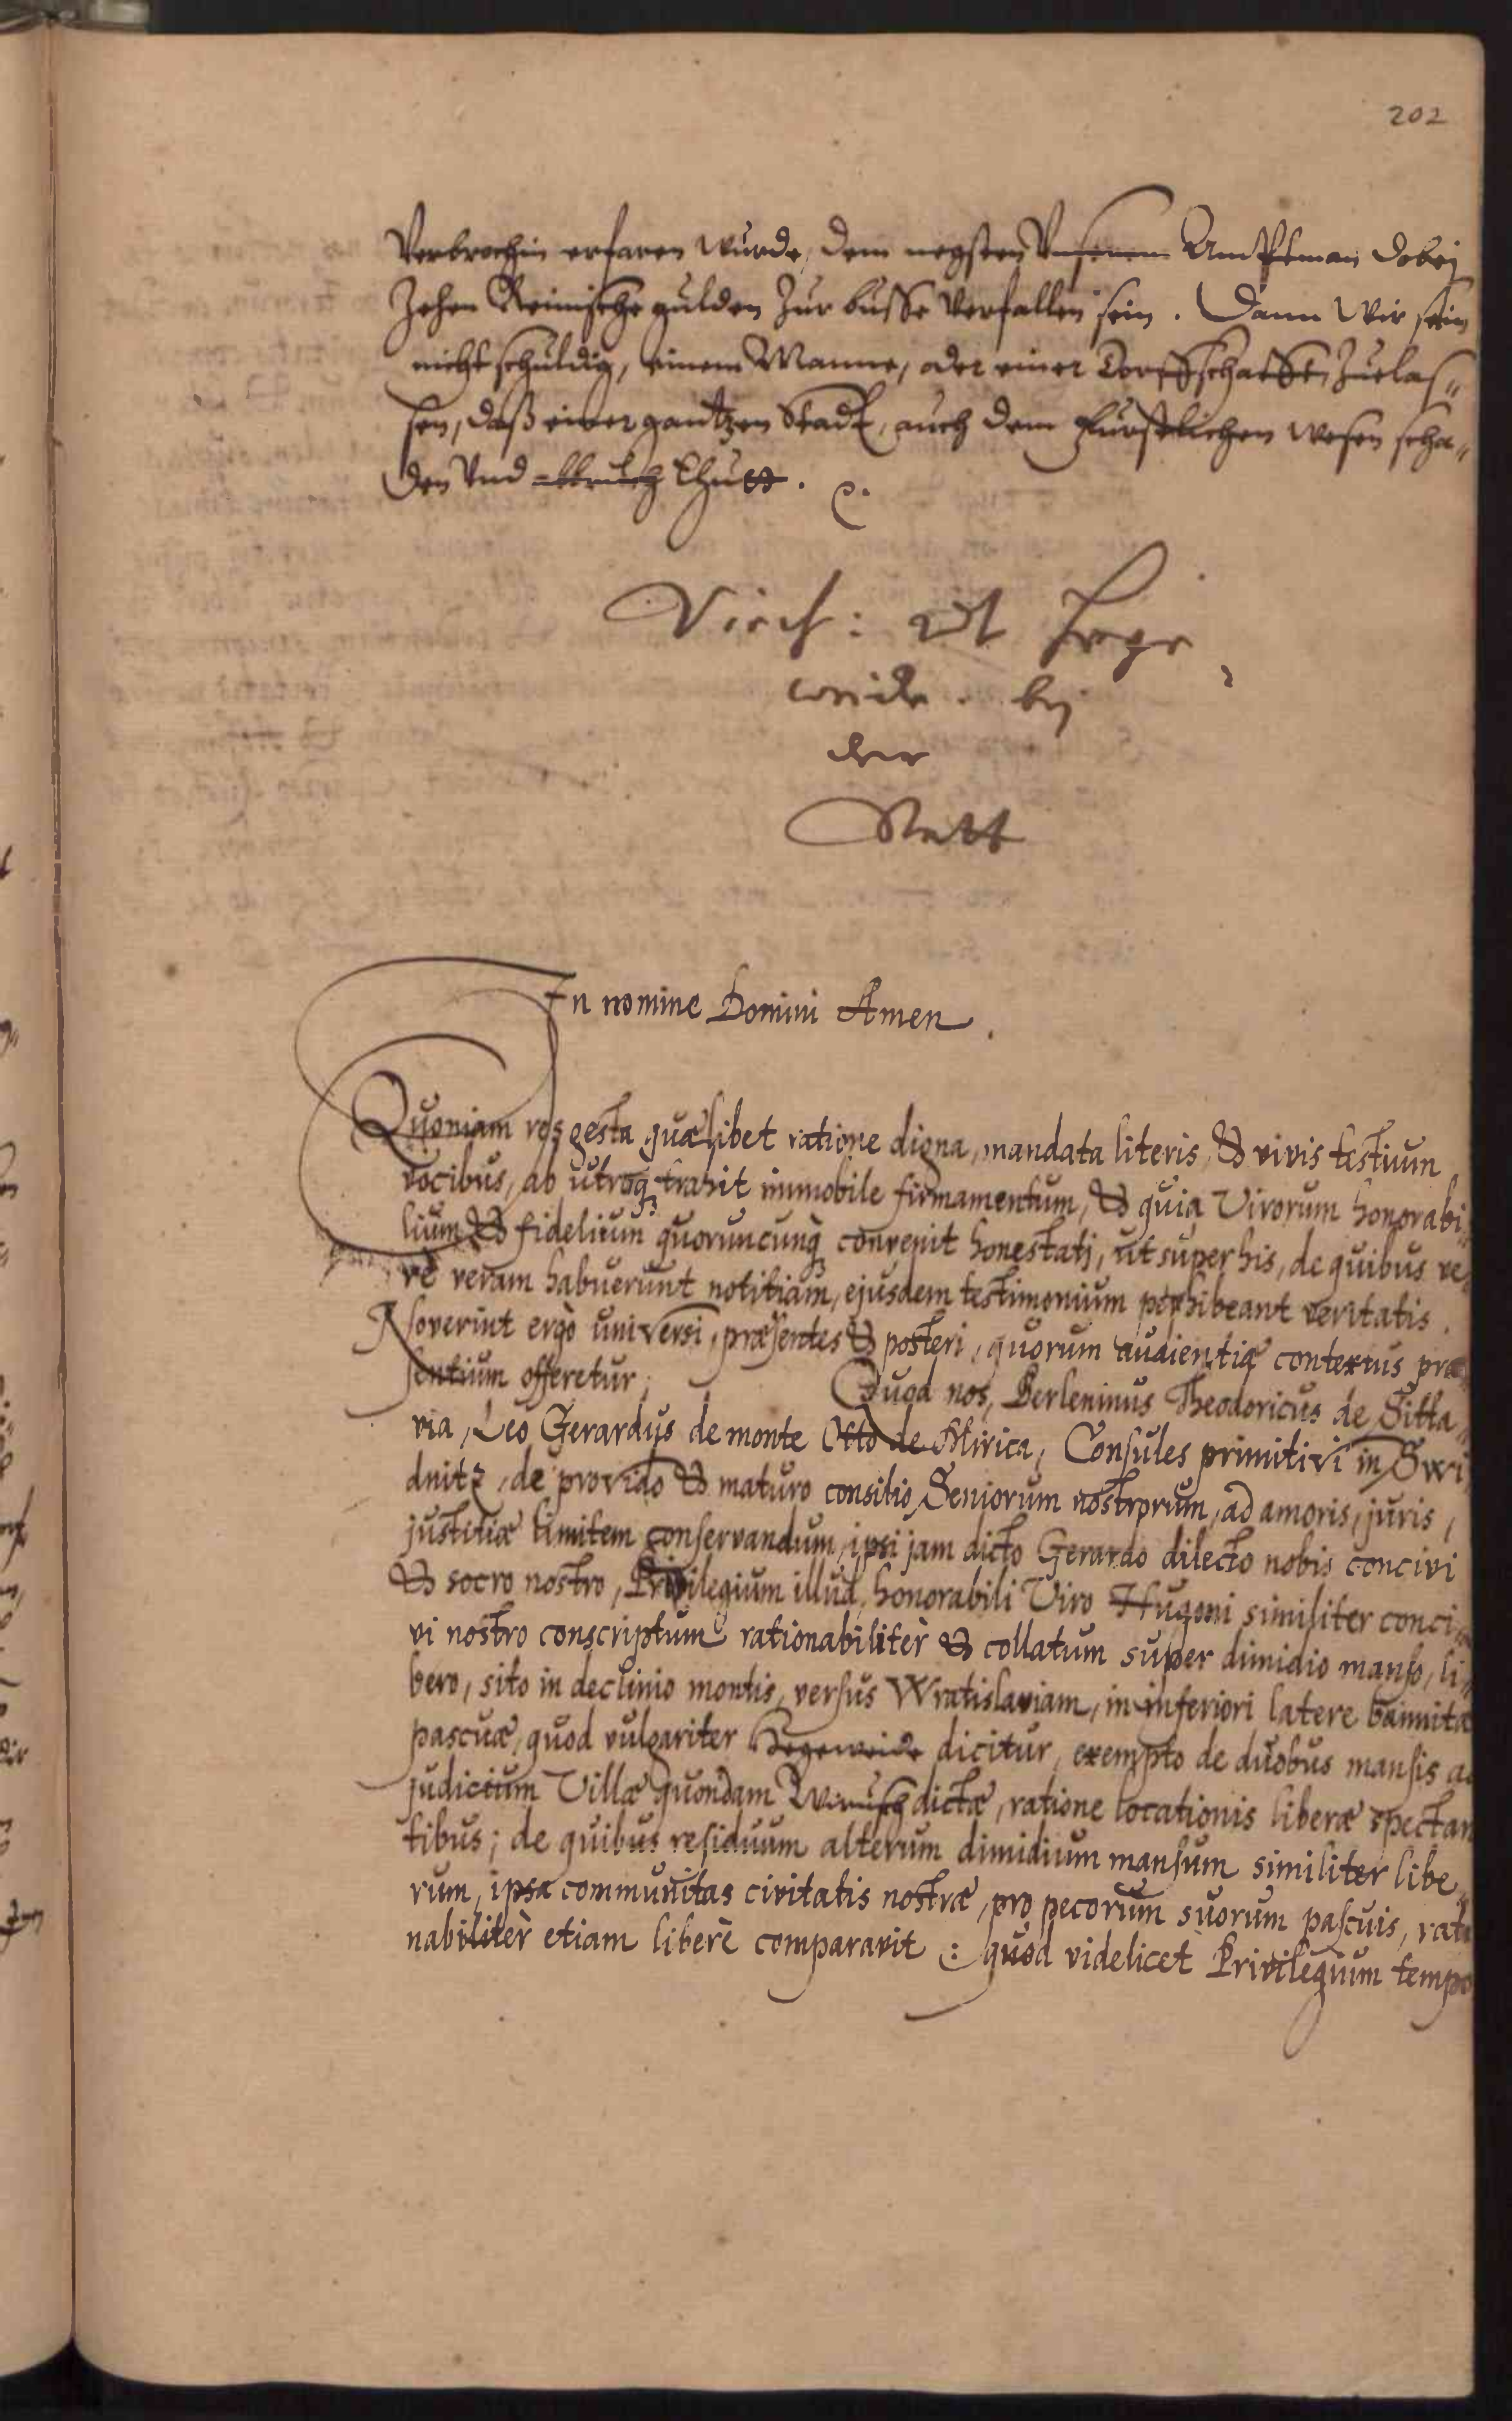 202
Verbrochin erfaren wurde, dem negsten Vnserem Amptman dobej
Zehen Reinische gulden Zur busse verfallen sein. Dann Wir sein
nicht schuldig, einem Manne, oder einer Dorffschafft, Zuelas„
sen, daß einer gantzen Stadt, auch dem Fürstlichen wesen scha„
den Vnd abbruch thuet.
weide. bej
der
Statt
In nomine Domini Amen.
Quoniam res gesta quælibet ratione digna, mandata literis, & vivis testium
vocibus, ab utroq; trahit immobile firmamentum, & quia Virorum honorabi„
lium & fidelium quoruncunq; convenit honestati, ut super his, de quibus ve„
rè veram habuerunt notitiam, ejusdem testimonium perhibeant veritatis.
Noverint ergò universi, præsentes & posteri, quorum audientiæ contextus præ„
sentium offeretur, Quod nos, Berleninus Theodoricus de Sitta„
via, Leo Gerardus de monte Otto de Mirica, Consules primitivi in Swi„
dnitz, de provido & maturo consilio Seniorum nostrorum, ad amoris, juris,
justitiæ limitem conservandum, ipsi jam dicto Gerardo dilecto nobis concivi
& socro nostro, Privilegium illud, honorabili Viro Hugoni similiter conci„
vi nostro conscriptum rationabilitèr & collatum super dimidio manso, li„
bero, sito in declinio montis, versus Wratislaviam, in inferiori latere bannitæ
pascuæ, quod vulgariter Hegeweide dicitur, exempto de duobus mansis ad
judicium Villæ quondam dictæ, ratione locationis liberæ spectan
tibus; de quibus residuum alterum dimidium mansum similiter libe„
rum, ipsa communitas civitatis nostræ, pro pecorum suorum pascuis, ratio
nabilitèr etiam liberè comparavit: quod videlicet Privilegium tempo